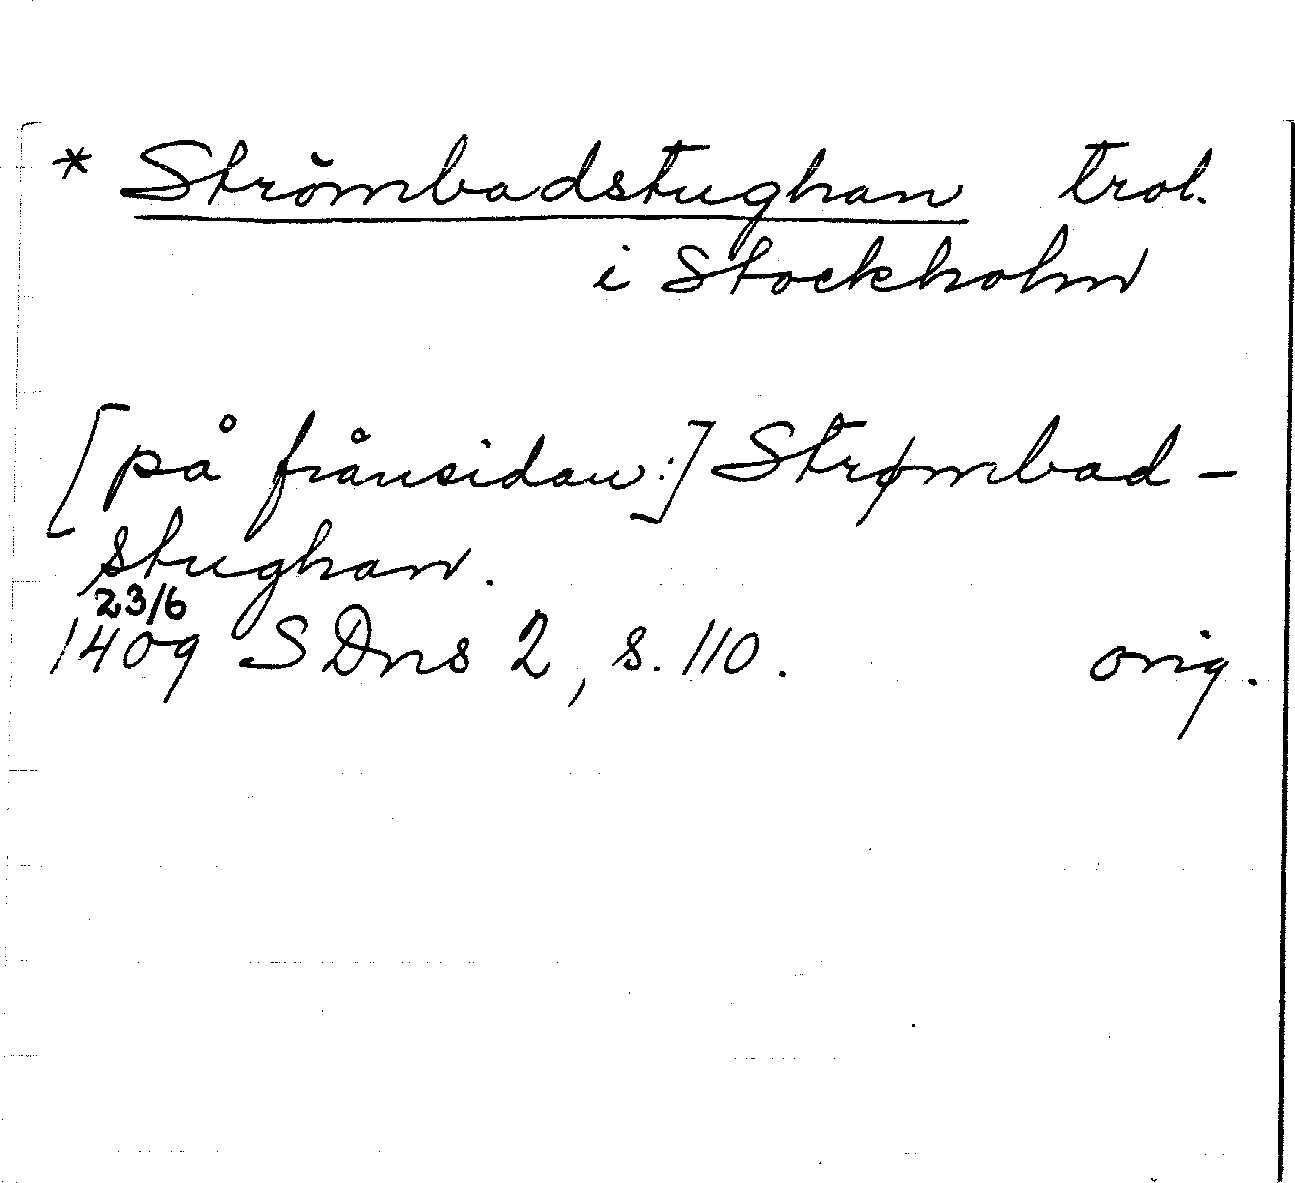 * Strömbadstughan trol.
i Stockholm
[på frånsidan:] Strømbad-
stughan.
23/6
1409 SDns 2, s. 110. orig.